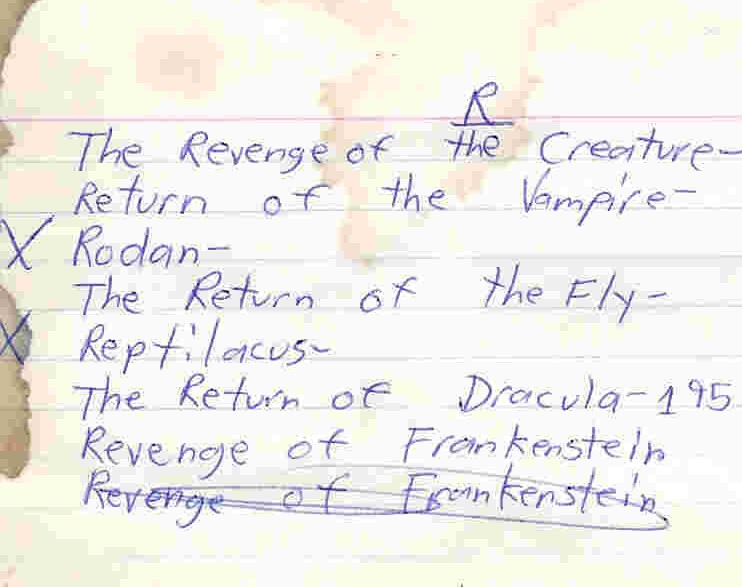 R
The Revenge of the Creature-
Return of the Vampire-
X Rodan-
The Return of the Fly-
X Reptilacus-
The Return of Dracula-195
Revenge of Frankenstein
Revenge of Frankenstein